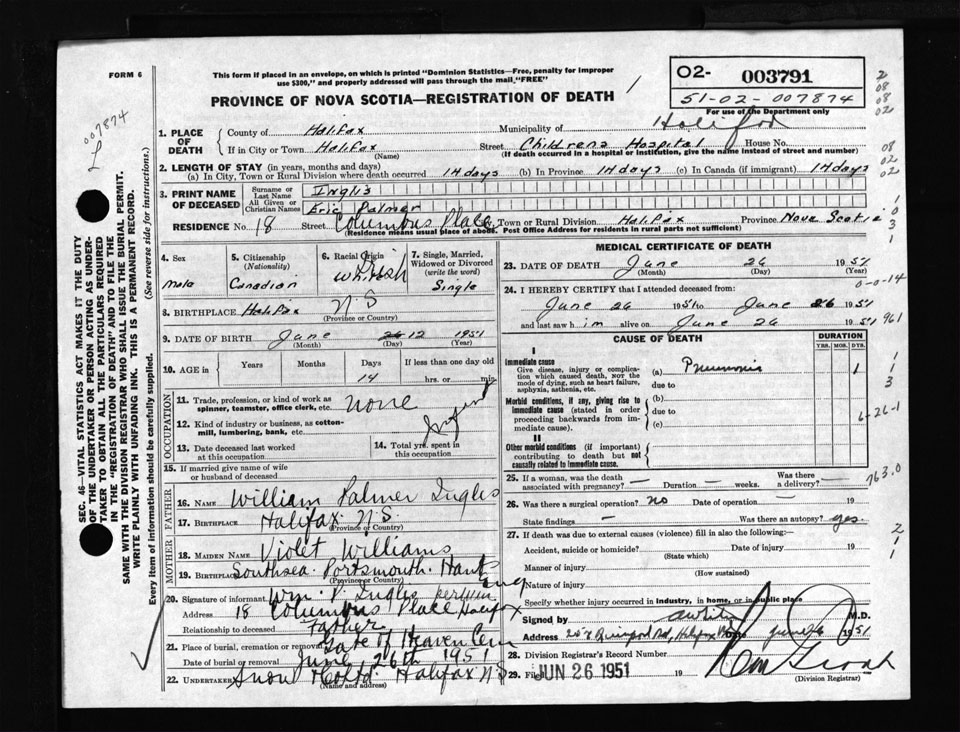 FORM 6
This form if placed in an envelope, on which is printed "Dominion Statistics—Free, penalty for improper
use $300," and properly addressed will pass through the mail, "FREE"
PROVINCE OF NOVA SCOTIA—REGISTRATION OF DEATH
02- 003791
51-02-007874
For use of the Department only
007874
SEC. 46—VITAL STATISTICS ACT MAKES IT THE DUTY
OF THE UNDERTAKER OR PERSON ACTING AS UNDER-
TAKER TO OBTAIN ALL THE PARTICULARS REQUIRED
IN THE "REGISTRATION OF DEATH" AND TO FILE THE
SAME WITH THE DIVISION REGISTRAR WHO SHALL ISSUE THE BURIAL PERMIT.
WRITE PLAINLY WITH UNFADING INK. THIS IS A PERMANENT RECORD.
Every item of information should be carefully supplied. (See reverse side for instructions.)
1. PLACE OF DEATH
County of Halifax Municipality of Halifax
If in City or Town Halifax Street Childrens Hospital House No.
(Name) (If death occurred in a hospital or institution, give the name instead of street and number)
2. LENGTH OF STAY (in years, months and days)
(a) In City, Town or Rural Division where death occurred 14 days (b) In Province 14 days (c) In Canada (if immigrant) 14 days
3. PRINT NAME OF DECEASED
Surname or Last Name Inglis
All Given or Christian Names Eric Palmer
RESIDENCE No. 18 Street Columbus Place, Town or Rural Division Halifax Province Nova Scotia
(Residence means usual place of abode. Post Office Address for residents in rural parts not sufficient)
4. Sex Male
5. Citizenship (Nationality) Canadian
6. Racial Origin
7. Single, Married, Widowed or Divorced (write the word) Single
8. BIRTHPLACE Halifax N S
(Province or Country)
9. DATE OF BIRTH June 12 1951
(Month) (Day) (Year)
10. AGE in Years Months Days If less than one day old
14 hrs. or min.
OCCUPATION
11. Trade, profession, or kind of work as spinner, teamster, office clerk, etc. none
12. Kind of industry or business, as cotton-mill, lumbering, bank, etc. Infant
13. Date deceased last worked at this occupation
14. Total yrs. spent in this occupation
15. If married give name of wife or husband of deceased
FATHER
16. NAME William Palmer Inglis
17. BIRTHPLACE Halifax N.S.
(Province or Country)
MOTHER
18. MAIDEN NAME Violet Williams
19. BIRTHPLACE Southsea Portsmouth Hant Eng
(Province or Country)
20. Signature of informant Wm. P. Inglis
Address 18 Columbus Place Halifax
Relationship to deceased Father
21. Place of burial, cremation or removal Gate of Heaven Cem
Date of burial or removal June 26th 1951
22. Undertaker Snow Halifax N S
(Name and address)
MEDICAL CERTIFICATE OF DEATH
23. DATE OF DEATH June 26 1951
(Month) (Day) (Year)
24. I HEREBY CERTIFY that I attended deceased from:
June 26 1951 to June 26 1951
and last saw him alive on June 26 1951
CAUSE OF DEATH DURATION
YRS. MOS. DYS.
I
Immediate cause (a) Pneumonia 1
Give disease, injury or complication which caused death, not the mode of dying, such as heart failure, asphyxia, asthenia, etc. due to
Morbid conditions, if any, giving rise to immediate cause (stated in order proceeding backwards from immediate cause). (b)
due to
(c)
II
Other morbid conditions (if important) contributing to death but not causally related to immediate cause.
25. If a woman, was the death associated with pregnancy? — Duration — weeks. Was there a delivery? —
26. Was there a surgical operation? No Date of operation — 19
State findings — Was there an autopsy? yes.
27. If death was due to external causes (violence) fill in also the following:—
Accident, suicide or homicide? Date of injury 19
(State which)
Manner of injury
(How sustained)
Nature of injury
Specify whether injury occurred in industry, in home, or in public place
Signed by M.D.
Address Halifax June 26 1951
28. Division Registrar's Record Number
29. Filed JUN 26 1951
(Division Registrar)
0-0-14
961
6-26-1
763.0